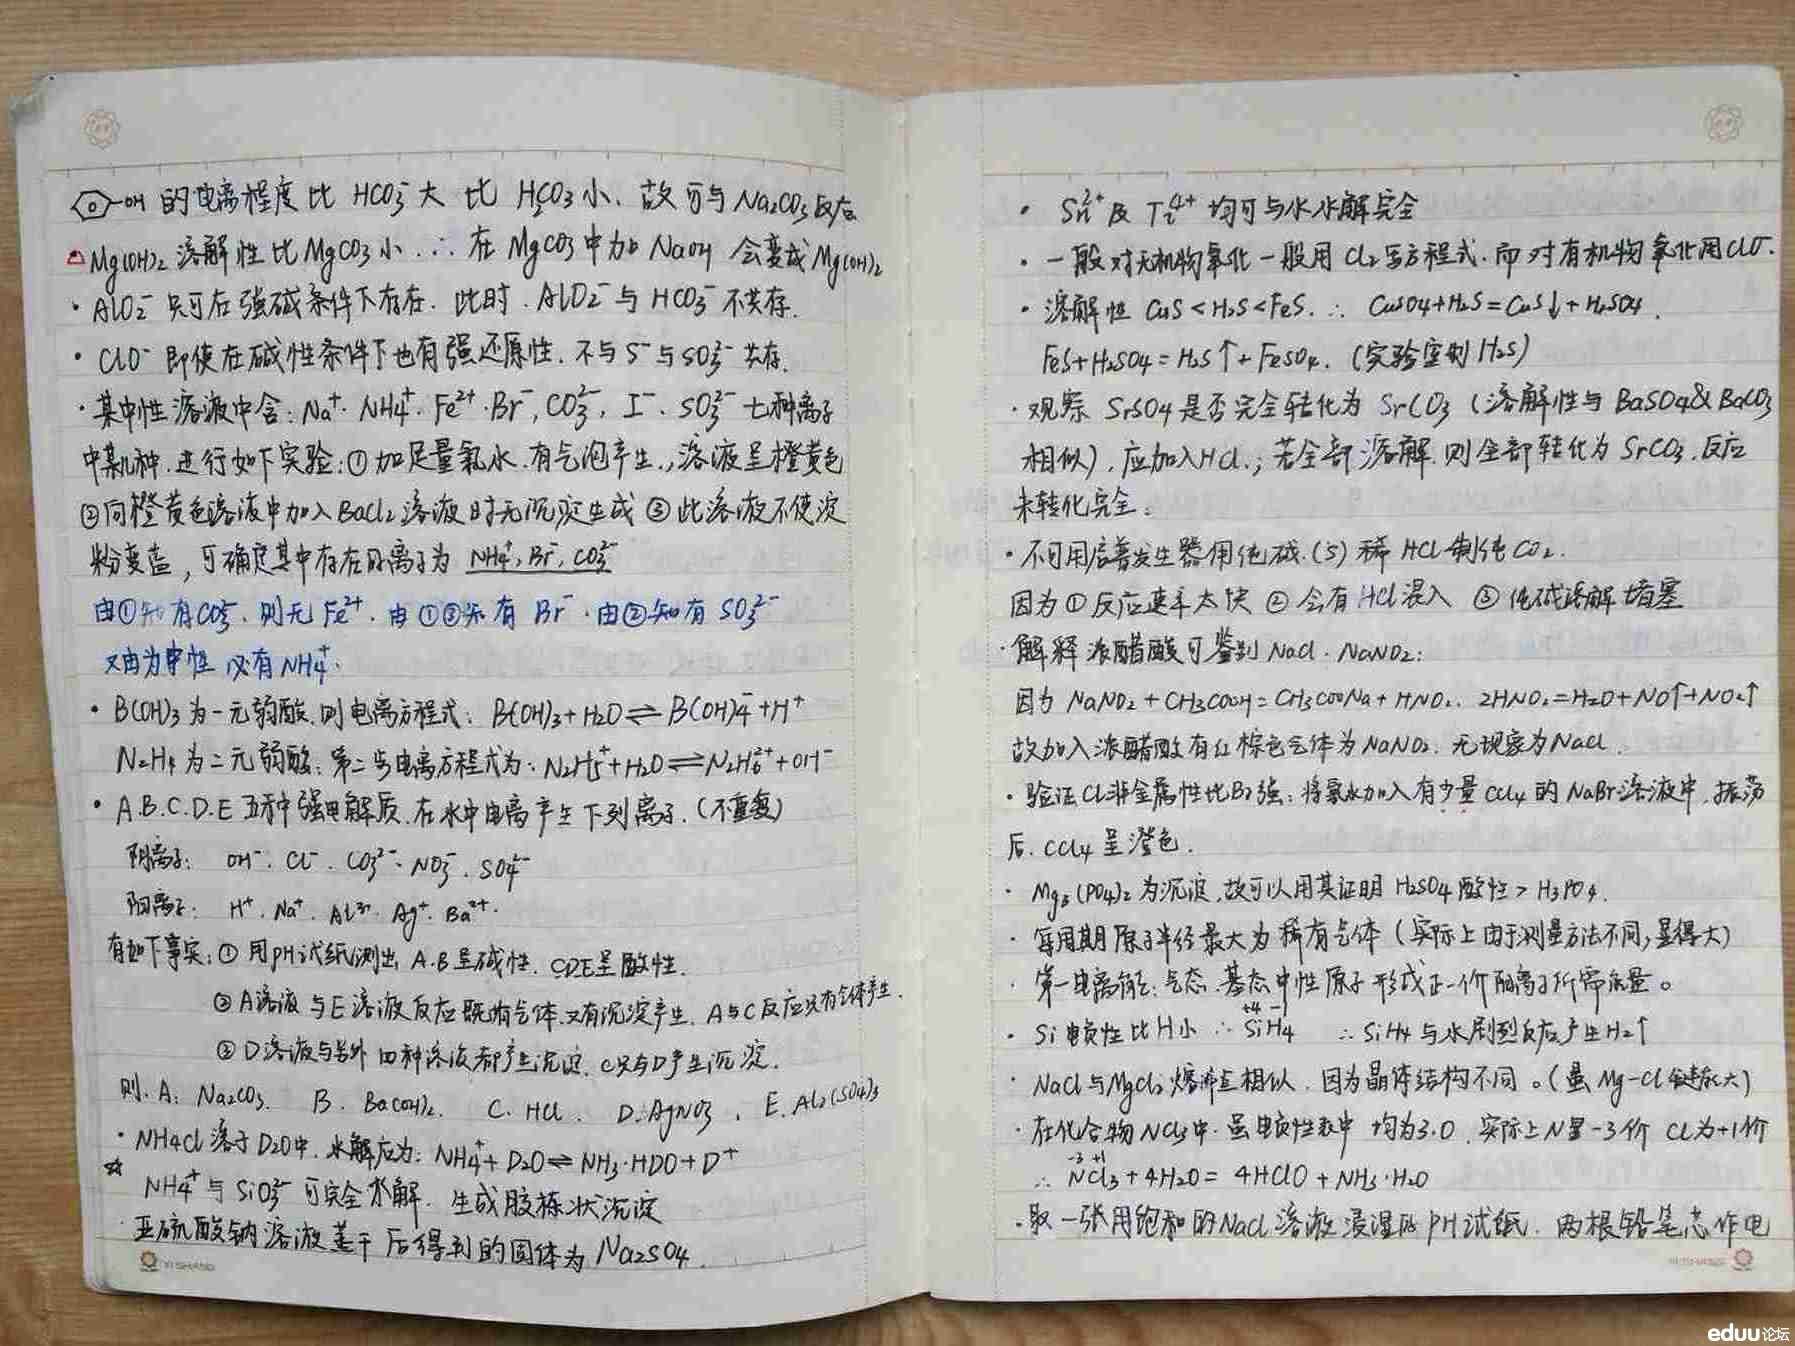 OH 的电离程度比 HCO₃⁻大 比 H₂CO₃小、故可与Na₂CO₃反应
Mg(OH)₂ 溶解性比MgCO₃小 ∴ 在 MgCO₃ 中加 NaOH 会变成 Mg(OH)₂
· AlO₂⁻ 只可在强碱条件下存在. 此时. AlO₂⁻与 HCO₃⁻ 不共存.
· ClO⁻ 即使在碱性条件下也有强还原性. 不与S⁻与SO₃²⁻共存.
· 某中性溶液中含: Na⁺· NH₄⁺· Fe²⁺·Br⁻, CO₃²⁻, I⁻· SO₃²⁻ 七种离子
中某几种. 进行如下实验: ①加足量氯水. 有气泡产生., 溶液呈橙黄色
②向橙黄色溶液中加入BaCl₂溶液时无沉淀生成 ③此溶液不使淀
粉变蓝, 可确定其中存在的离子为 NH₄⁺, Br⁻, CO₃²⁻
由①知有CO₃²⁻. 则无 Fe²⁺. 由①③知有 Br⁻·由②知有 SO₃²⁻
又由为中性 必有NH₄⁺.
· B(OH)₃为一元弱酸. 则电离方程式: B(OH)₃+H₂O⇌B(OH)₄⁻+H⁺
N₂H₄为二元弱酸: 第二步电离方程式为: N₂H₅⁺+H₂O⇌N₂H₆²⁺+OH⁻
· A.B.C.D.E 五种强电解质. 在水中电离产生下列离子. (不重复)
阴离子: OH⁻. Cl⁻. CO₃²⁻· NO₃⁻. SO₄²⁻
阳离子: H⁺. Na⁺. Al³⁺. Ag⁺. Ba²⁺.
有如下事实: ① 用pH试纸测出 A.B呈碱性. CDE呈酸性.
② A溶液与E溶液反应既有气体.又有沉淀产生. A与C反应只有气体产生.
③ D溶液与另外四种溶液都产生沉淀. C只与D产生沉淀.
则. A: Na₂CO₃. B. Ba(OH)₂. C. HCl. D. AgNO₃. E. Al₂(SO₄)₃
· NH₄Cl溶于D₂O中. 水解应为: NH₄⁺+D₂O⇌NH₃·HDO+D⁺
☆ NH₄⁺与SiO₃²⁻可完全水解. 生成胶状沉淀
· 亚硫酸钠溶液蒸干后得到的固体为Na₂SO₄.
YI SHANG
· Sn²⁺及 Ti⁴⁺ 均可与水水解完全
· 一般对无机物氧化一般用Cl₂写方程式. 而对有机物氧化用ClO⁻.
· 溶解性 CuS<H₂S<FeS. ∴ CuSO₄+H₂S=CuS↓+H₂SO₄.
FeS+H₂SO₄=H₂S↑+FeSO₄. (实验室制H₂S)
· 观察 SrSO₄是否完全转化为 SrCO₃ (溶解性与BaSO₄&BaCO₃
相似), 应加入HCl.; 若全部溶解. 则全部转化为SrCO₃. 反应
未转化完全.
· 不可用启普发生器用纯碱.(S)稀HCl制纯CO₂.
因为①反应速率太快 ②会有HCl混入 ③纯碱溶解堵塞
· 解释浓醋酸可鉴别NaCl·NaNO₂:
因为 NaNO₂+CH₃COOH=CH₃COONa+HNO₂. 2HNO₂=H₂O+NO↑+NO₂↑
故加入浓醋酸有红棕色气体为NaNO₂. 无现象为NaCl.
· 验证Cl非金属性比Br强: 将氯水加入有少量CCl₄的NaBr溶液中. 振荡
后. CCl₄呈澄色.
· Mg₃(PO₄)₂为沉淀. 故可以用其证明H₂SO₄酸性>H₃PO₄.
· 每周期原子半径最大为稀有气体 (实际上由于测量方法不同,显得大)
· 第一电离能: 气态. 基态中性原子形成正一价阳离子所需能量。
· Si电负性比H小 ∴ SiH₄ +4 -1 ∴ SiH₄与水剧烈反应产生H₂↑
· NaCl与MgCl₂熔沸点相似. 因为晶体结构不同。(虽Mg-Cl键能大)
· 在化合物NCl₃中. 虽电负性表中均为3.0. 实际上N呈-3价 Cl为+1价
∴ NCl₃ -3 +1 + 4H₂O = 4HClO + NH₃·H₂O
· 取一张用饱和的NaCl溶液浸湿的PH试纸. 两根铅笔芯作电
YI SHANG
eduu论坛